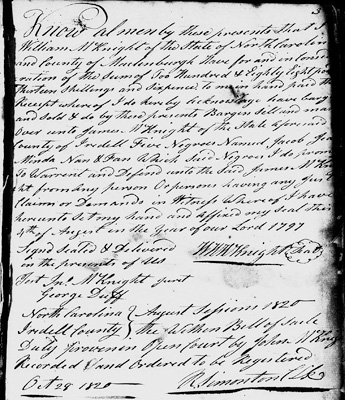 3
Know al men by these presents that I
William McKnight of the State of North Carolina
and County of Mecklenburgh Have for and in Consid
eration of the Sum of Two Hundred & Eighty Eight pou
Thirteen Shillings and Sixpence to me in hand paid the
Receipt whereof I do hereby acknowledge have barg
and Sold & do by these presents Bargain Sell and mak
Over unto James McKnight of the State afore said
County of Iredell Five Negroes Named, Jacob,
Minda Nan & Fan Which Said Negroes I do prom
To Warrant and Defend unto the Said James McKn
ght from any Person Or persons having any just
Claim or Demands in Witness Whereof I have
hereunto Set my hand and affixed my Seal this
4th of August in the Year of our Lord 1797
Signd Sealed & Delivered
in the presents of Us
Wm McKnight Seal
Test Jno. McKnight Jurat
George Duff
North Carolina } August Sessions 1820
Iredell County } The Within Bill of Sale
Duly proven in Open Court by John McKnig
Recorded & and Ordered to be Registered
Oct 28 1820
R. Simonton Clk